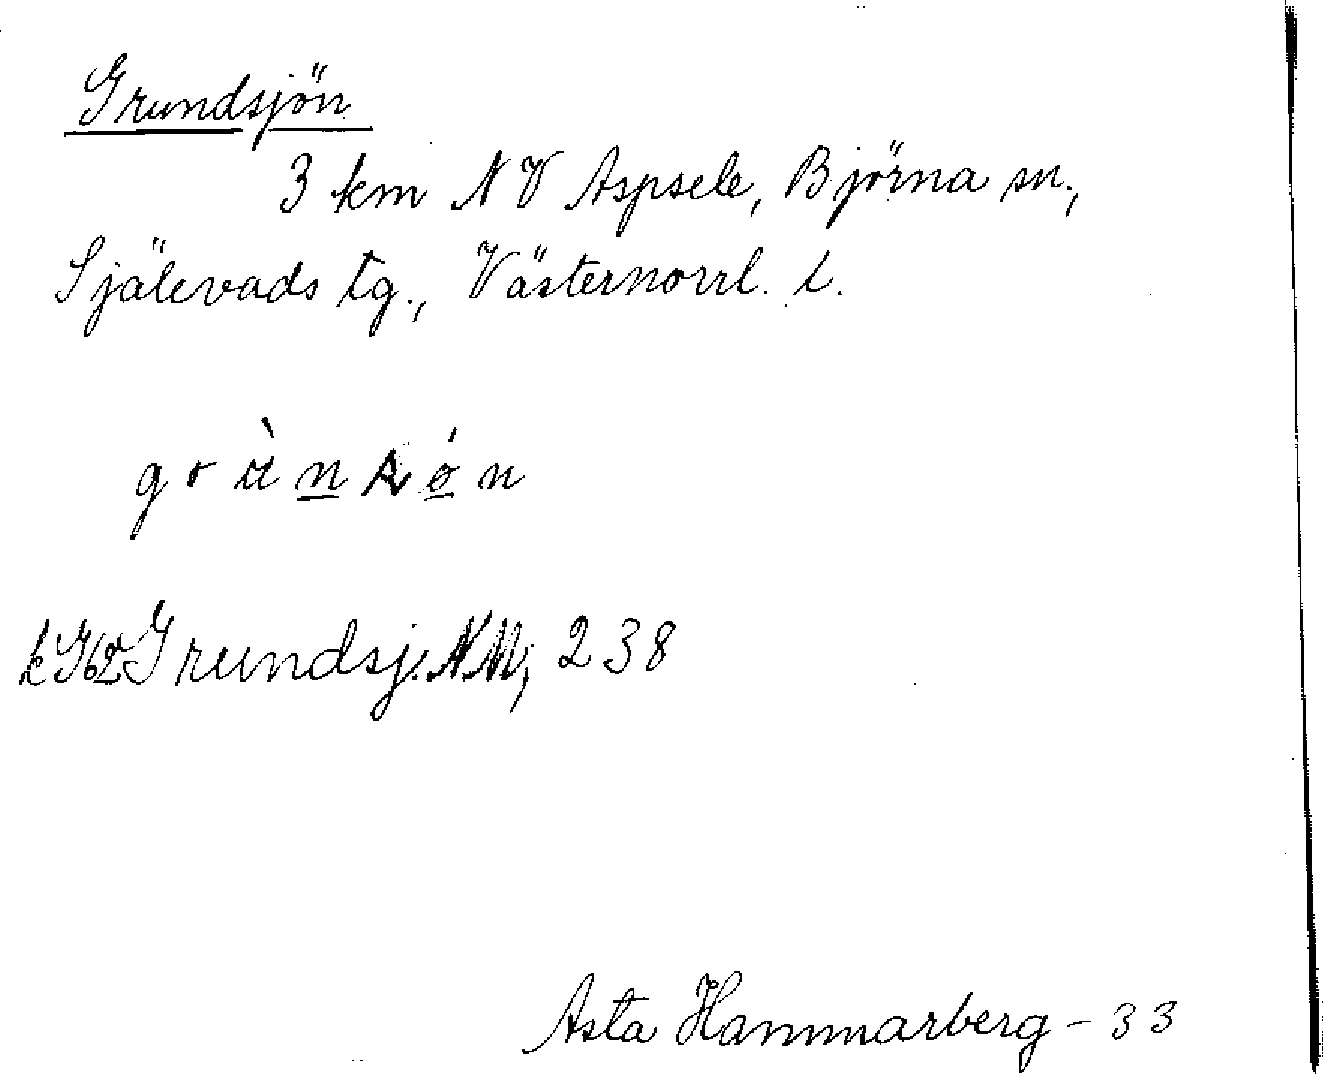 Grundsjön
3 km NV Aspsele, Björna sn.,
Själevads tg., Västernorrl. l.
Grundsj. NM; 238
Asta Hammarberg - 33